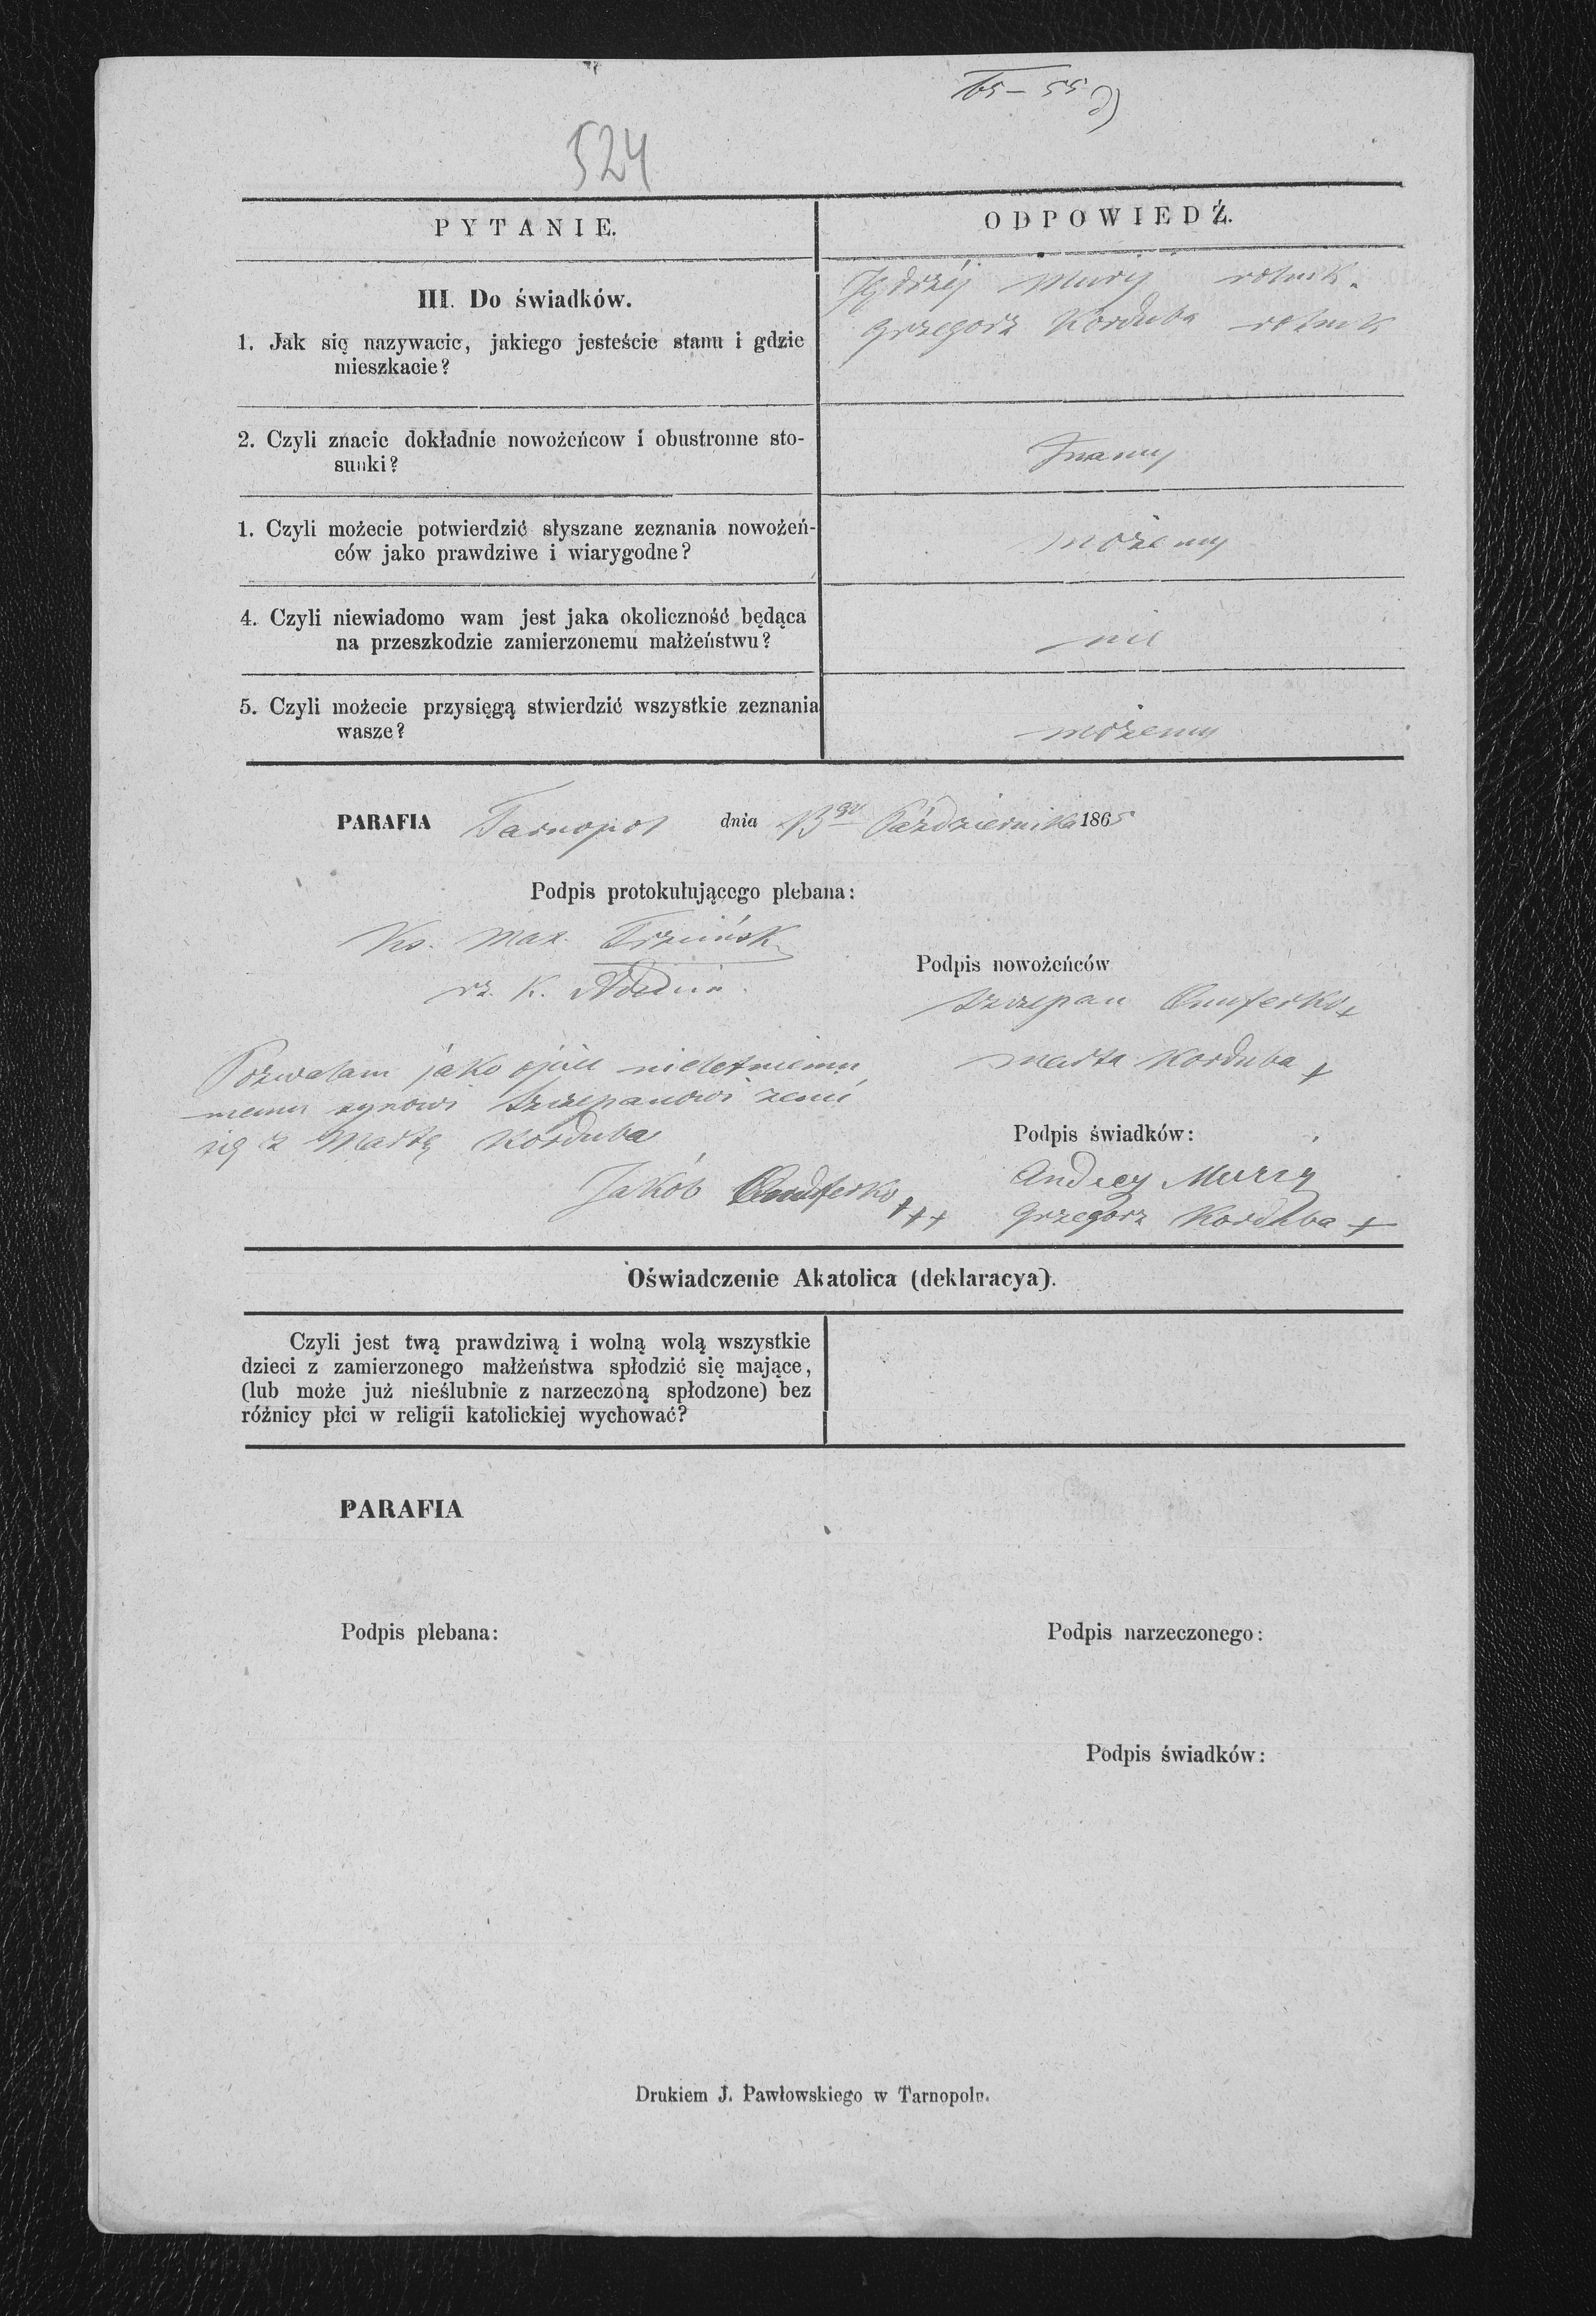 524
PYTANIE.
ODPOWIEDŹ.
III. Do świadków.
1. Jak się nazywacie, jakiego jesteście stanu i gdzie
mieszkacie?
Jędrzéj Muryj rolnik.
Grzegorz Korduba rolnik
2. Czyli znacie dokładnie nowożeńcow i obustronne sto-
sunki?
Znamy
1. Czyli możecie potwierdzić słyszane zeznania nowożeń-
ców jako prawdziwe i wiarygodne?
możemy
4. Czyli niewiadomo wam jest jaka okoliczność będąca
na przeszkodzie zamierzonemu małżeństwu?
nie
5. Czyli możecie przysięgą stwierdzić wszystkie zeznania
wasze?
możemy
PARAFIA Tarnopol dnia Października 1865
Podpis protokułującego plebana:
Ks. Max.
rz. k.
Podpis nowożeńców
Szczepan Onuferko +
Marta Korduba +
Pozwalam jako ojciec nieletniemu
memu synowi Szczepanowi żenić
się z Martą Korduba
Jakób Onuferko +++
Podpis świadków:
Andrey Muryj
Grzegorz Korduba +
Oświadczenie Akatolica (deklaracya).
Czyli jest twą prawdziwą i wolną wolą wszystkie
dzieci z zamierzonego małżeństwa spłodzić się mające,
(lub może już nieślubnie z narzeczoną spłodzone) bez
różnicy płci w religii katolickiej wychować?
PARAFIA
Podpis plebana:
Podpis narzeczonego:
Podpis świadków:
Drukiem J. Pawłowskiego w Tarnopolu.